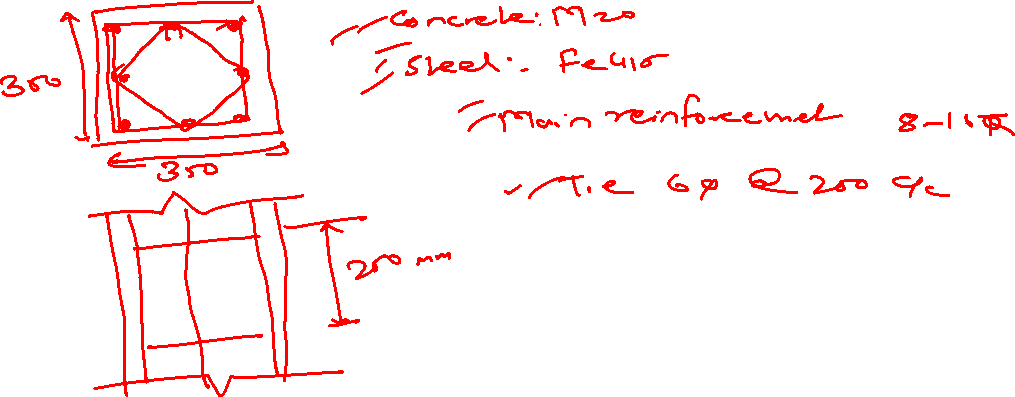 Concrete: M20
Steel: Fe415
300
Main reinforcement 8-16Φ
350
Tie 6φ @ 200 c/c
200 mm